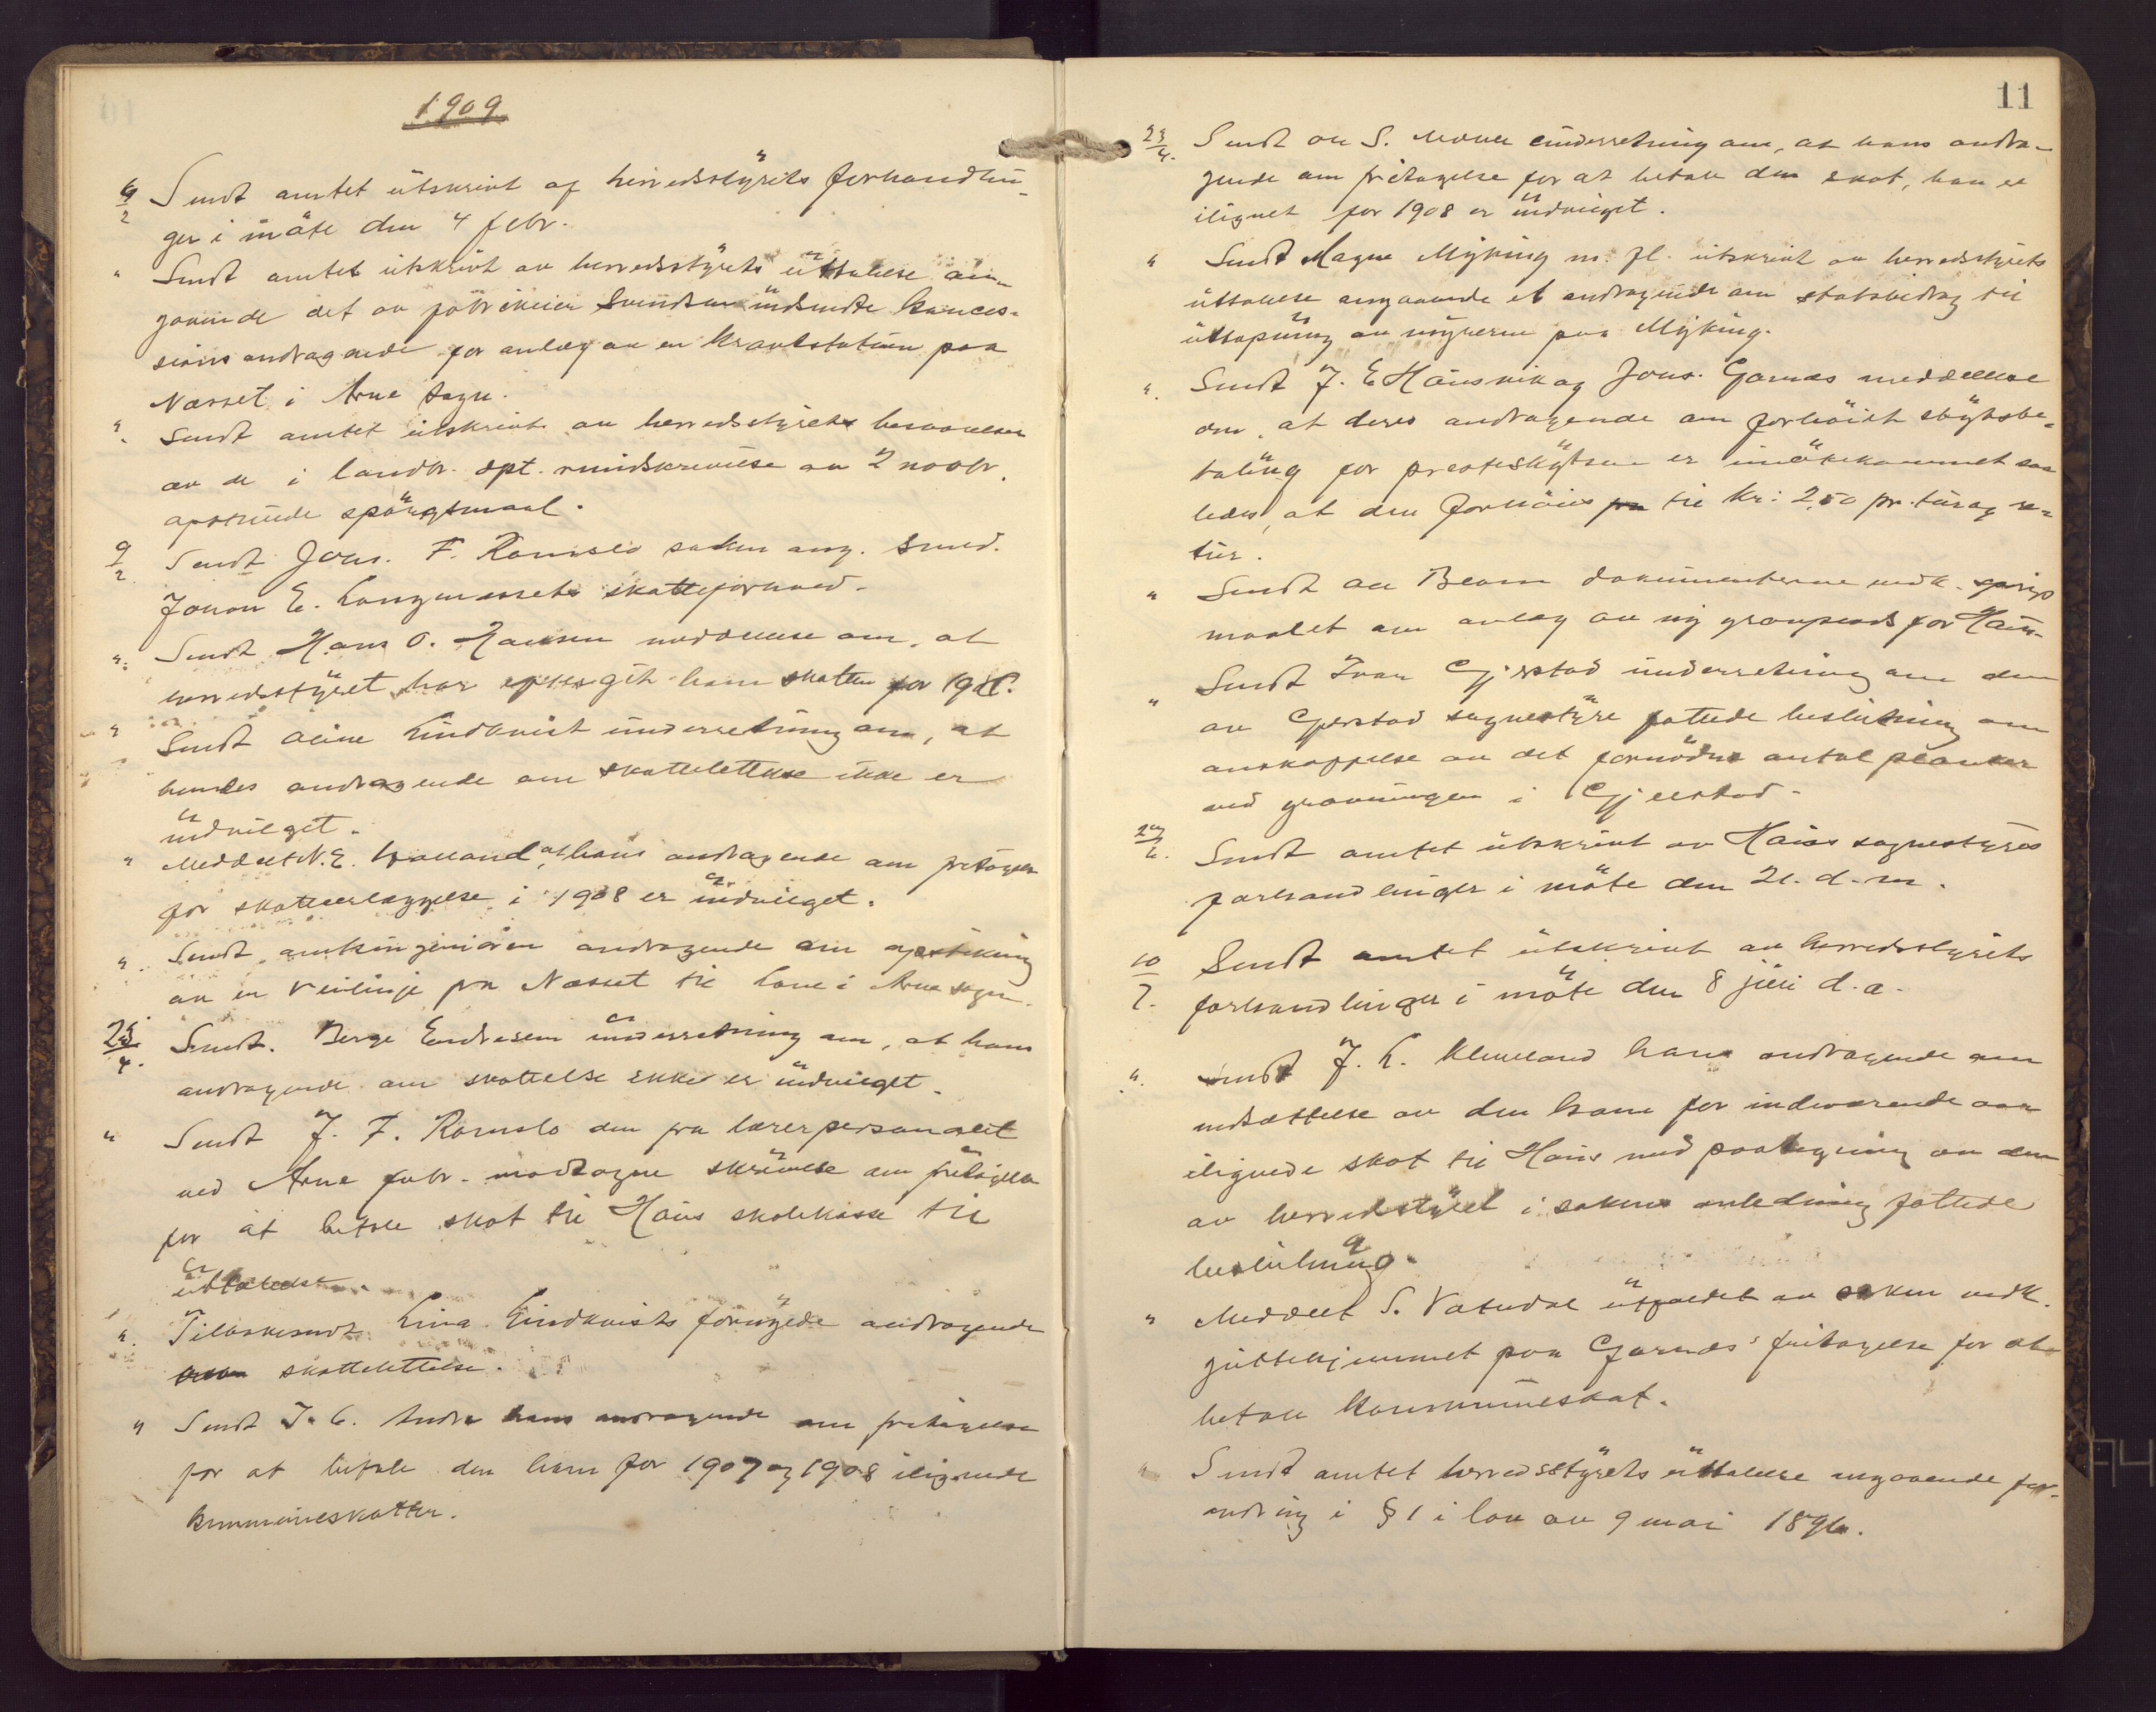 1909
9/2 Sendt amtet utskrivt af herredsstyrets forhandlin-
ger i møte den 4 febr.
" Sendt amtet utskrivt av herredsstyrets uttalelse an-
gaaende det av fabrikeier Svendsen indsendte konces-
sions andragende for anlæg av en kraftstation paa
Næsset i Arne sogn.
" Sendt amtet utskrivt av herredsstyrets besvarelser
av de i landbr. dpt. rundskrivelse av 2 novbr.
opstillede spörgsmaal.
9/2 Sendt Johs. F. Romslo saken ang. smed.
Johan E. Langmarkets skatteforhold.
" Sendt Hans O. Hansen meddelelse om, at
herredsstyret har eftergit ham skatten for
" Sendt Lina Lindkvist underretning om, at
hendes andragende om skattelettelse ikke er
indvilget.
" Meddelt N. E. at hans andragende om fritagelse
for skatteerlæggelse i 1908 er indvilget.
" Sendt amtsingeniøren andragende om opstikning
av en veilinje fra Næsset til Lone i Arne sogn.
23/4. Sendt. Berge Endresen underretning om, at hans
andragende om skattelse ikke er indvilget.
" Sendt J. F. Romslo den fra lærerpersonalet
ved Arne fabr. modtagne skrivelse om fritagelse
for at betale skat til Haus skolekasse til
uttalelse.
" Tilbakesendt Lina Lindkvists fornyede andragende
skattelettelse.
" Sendt J. C. hans andragende om fritagelse
for at betale den ham for 1907 og 1908 ilignede
kommuneskatter.
11
23/4. Sendt S. underretning om, at hans andra-
gende om fritagelse for at betale den skat, han er
ilignet for 1908 er indvilget.
" Sendt Magne Myking m. fl. utskrivt av herredsstyrets
uttalelse angaaende et andragende om statsbidrag til
uttapning av myrerne paa Myking.
" Sendt J. E. Hausvik og Johs. Garnæs meddelelse
om, at deres andragende om forhöiet skydsbe-
taling for presteskydsen er imötekommet saa-
ledes, at den forhöies til kr: 2,50 pr. tur og re-
tur.
" Sendt dokumenterne vedk. spørgs
maalet om anlæg av ny gravplads for Haus.
" Sendt Ivar Gjerstad underretning om den
av Gjerstad sognestyre fattede beslutning om
anskaffelse av det fornödne antal planker
ved gravningen i Gjerstad.
Sendt amtet utskrivt av Haus sognestyres
forhandlinger i møte den 21. d. m.
10/7. Sendt amtet utskrivt av herredsstyrets
forhandlinger i møte den 8 juli d. a.
" Sendt J. L. Kleveland hans andragende om
nedsættelse av den ham for indeværende aar
ilignede skat til Haus med paategning om den
av herredsstyret i sakens anledning fattede
beslutning.
" Meddelt S. Vatsdal utfaldet av saken vedk.
guttehjemmet paa Garnæs' fritagelse for at
betale kommuneskat.
" Sendt amtet herredsstyrets uttalelse angaaende for-
andring i § 1 i lov av 9 mai 1896.